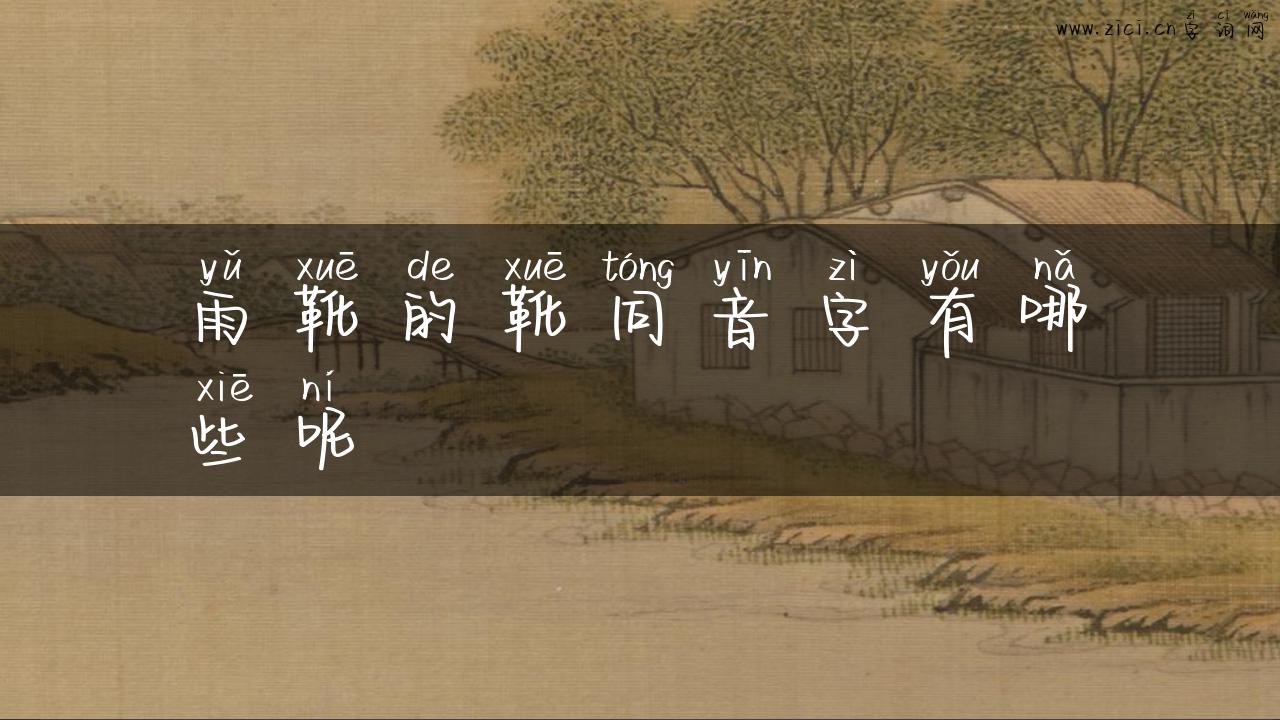 zì cí wǎng
www.zici.cn字词网
yǔ xuē de xuē tóng yīn zì yǒu nǎ
雨靴的靴同音字有哪
xiē ní
些呢